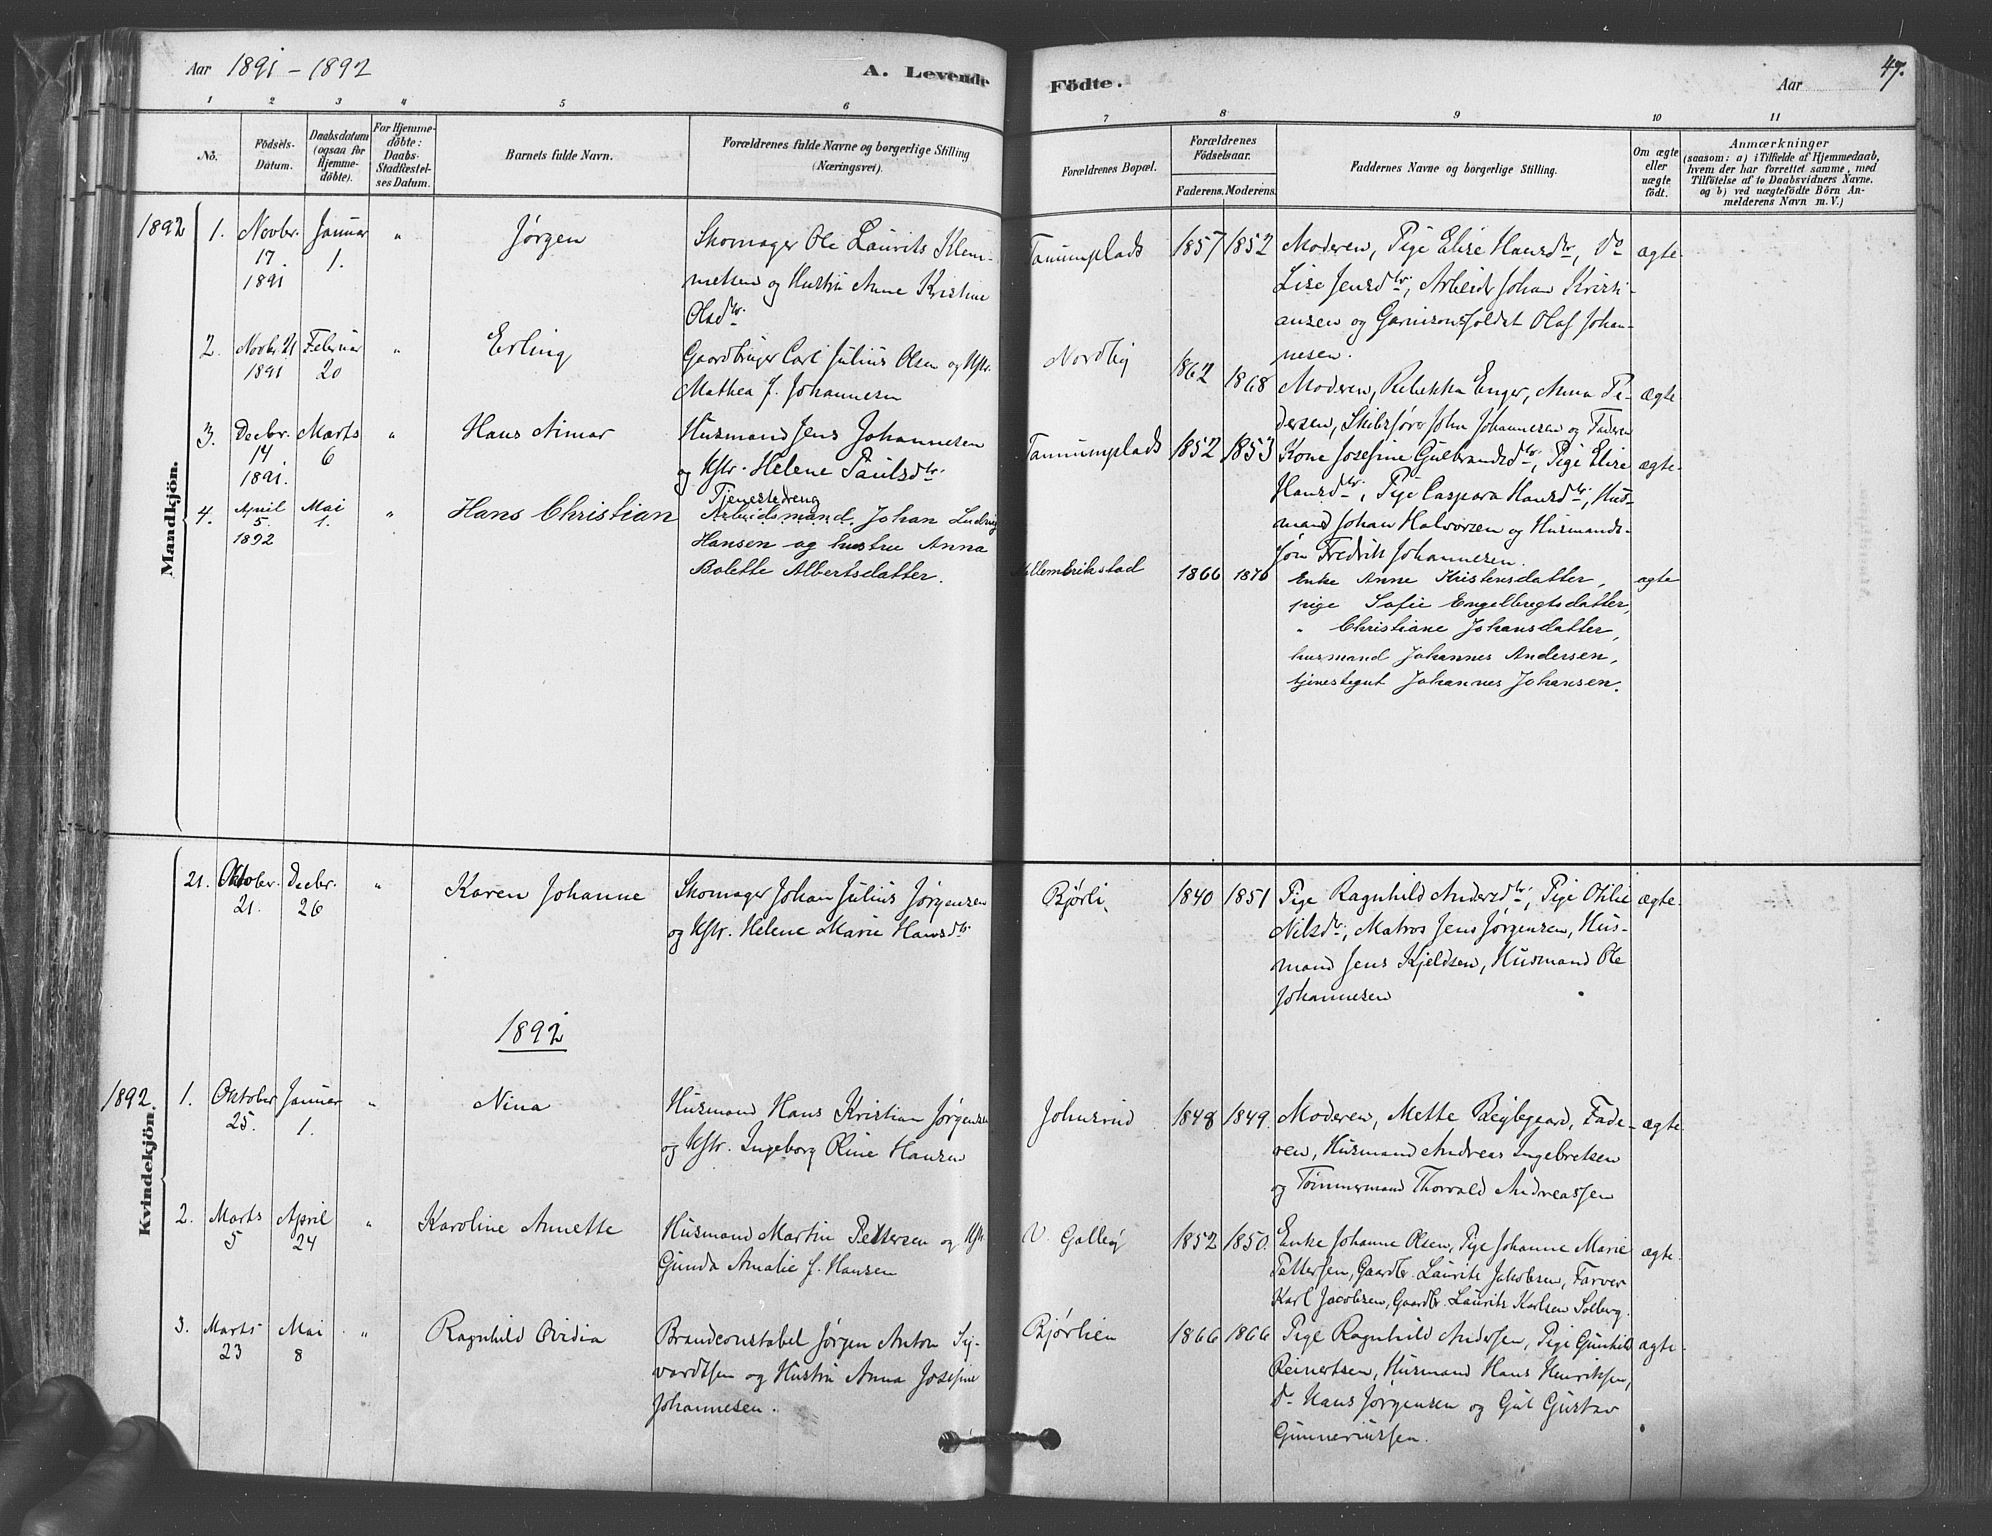 Aar 1891 - 1892
A. Levende
Födte.
Aar
47.
1 2 3 4 5 6 7 8 9 10 11
No.
Födsels-
Datum.
Daabsdatum
(ogsaa for
Hjemme-
döbte).
For Hjemme-
döbte:
Daabs-
Stadfæstel-
ses Datum.
Barnets fulde Navn.
Forældrenes fulde Navne og borgerlige Stilling
(Næringsvei).
Forældrenes Bopæl.
Forældrenes
Födselsaar.
Faderens. Moderens.
Faddernes Navne og borgerlige Stilling.
Om ægte
eller
uægte
födt.
Anmærkninger
(saasom: a) i Tilfælde af Hjemmedaab,
hvem der har forrettet samme, med
Tilföielse af to Daabsvidners Navne.
og b) ved uægtefödte Börn An-
melderens Navn m. V.)
Mandkjön.
1892
1.
Novbr.
17.
1891
Januar
1.
"
Jørgen
Skomager Ole Laurits Klem-
metsen og Hustru Anne Kristine
Olsdtr.
Tanumplads
1857
1852
Moderen, Pige Elise Hansdtr, Do
Lise Jensdtr, Arbeider Johan Kristi-
ansen og Garnisonssoldat Olaf Johan-
nesen.
ægte
2.
Novbr. 21
1891
Februar
20
"
Erling
Gaardbruger Carl Julius Olsen og Hstr.
Mathea f. Johannesen
Nordby
1862
1868
Moderen, Rebekka Enger, Anna Pe-
dersen, Skibsfører John Johannesen og Faderen
ægte
3.
Decbr.
14
1891.
Marts
6
"
Hans Aimar
Husmand Jens Johannesen
og Hstr. Helene Paulsdtr.
Tanumplads
1852
1853
Kone Josefine Gulbrandsdtr, Pige Elise
Hansdtr, Pige Caspara Hansdtr, Hus-
mand Johan Halvorsen og Husmands-
søn Fredrik Johannesen.
ægte
4.
April
5.
1892
Mai
1.
"
Hans Christian
Tjenestedreng
Arbeidsmand Johan Ludvig
Hansen og hustru Anna
Bolette Albertsdatter.
Mellem Erikstad
1866
1870
Enke Anne Kristensdatter,
pige Sofie Engelbregtsdatter,
" Christiane Johansdatter,
husmand Johannes Andersen,
tjenestegut Johannes Johansen.
ægte
Kvindekjön.
21.
Oktober.
21.
Decbr.
26
"
Karen Johanne
Skomager Johan Julius Jørgensen
og Hstr. Helene Marie Hansdtr.
Bjørli
1840
1851
Pige Ragnhild Andersdtr, Pige Othilie
Nilsdtr, Matros Jens Jørgensen, Hus-
mand Jens Kjeldsen, Husmand Ole
Johannesen
ægte
1892
1892
1.
Oktober
25.
Januar
1.
"
Nina
Husmand Hans Kristian Jørgensen
og Hstr. Ingeborg Oline Hansen
Johnsrud
1848
1849.
Moderen, Mette Bejlegaard, Fade-
ren, Husmand Andreas Ingebretsen
og Tømmermand Thorvald Andreassen
ægte
2.
Marts
5
April
24
"
Karoline Annette
Husmand Martin Pettersen og Hstr.
Gunda Amalie f. Hansen
V. Galleby
1852
1850.
Enke Johanne Olsen, Pige Johanne Marie
Pettersen, Gaardbr. Laurits Jakobsen, Farver
Karl Jacobsen, Gaardbr. Laurits Karlsen Solberg.
ægte
3.
Marts
23
Mai
8
"
Ragnhild Ovidia
Brandconstabel Jørgen Anton Sig-
vardtsen og Hustru Anna Josefine
Johannesen.
Bjørlien
1866
1866
Pige Ragnhild Andersen, Pige Gunhild
Reinertsen, Husmand Hans Henriksen,
Do Hans Jørgensen og Gut Gustav
Gunneriussen.
ægte